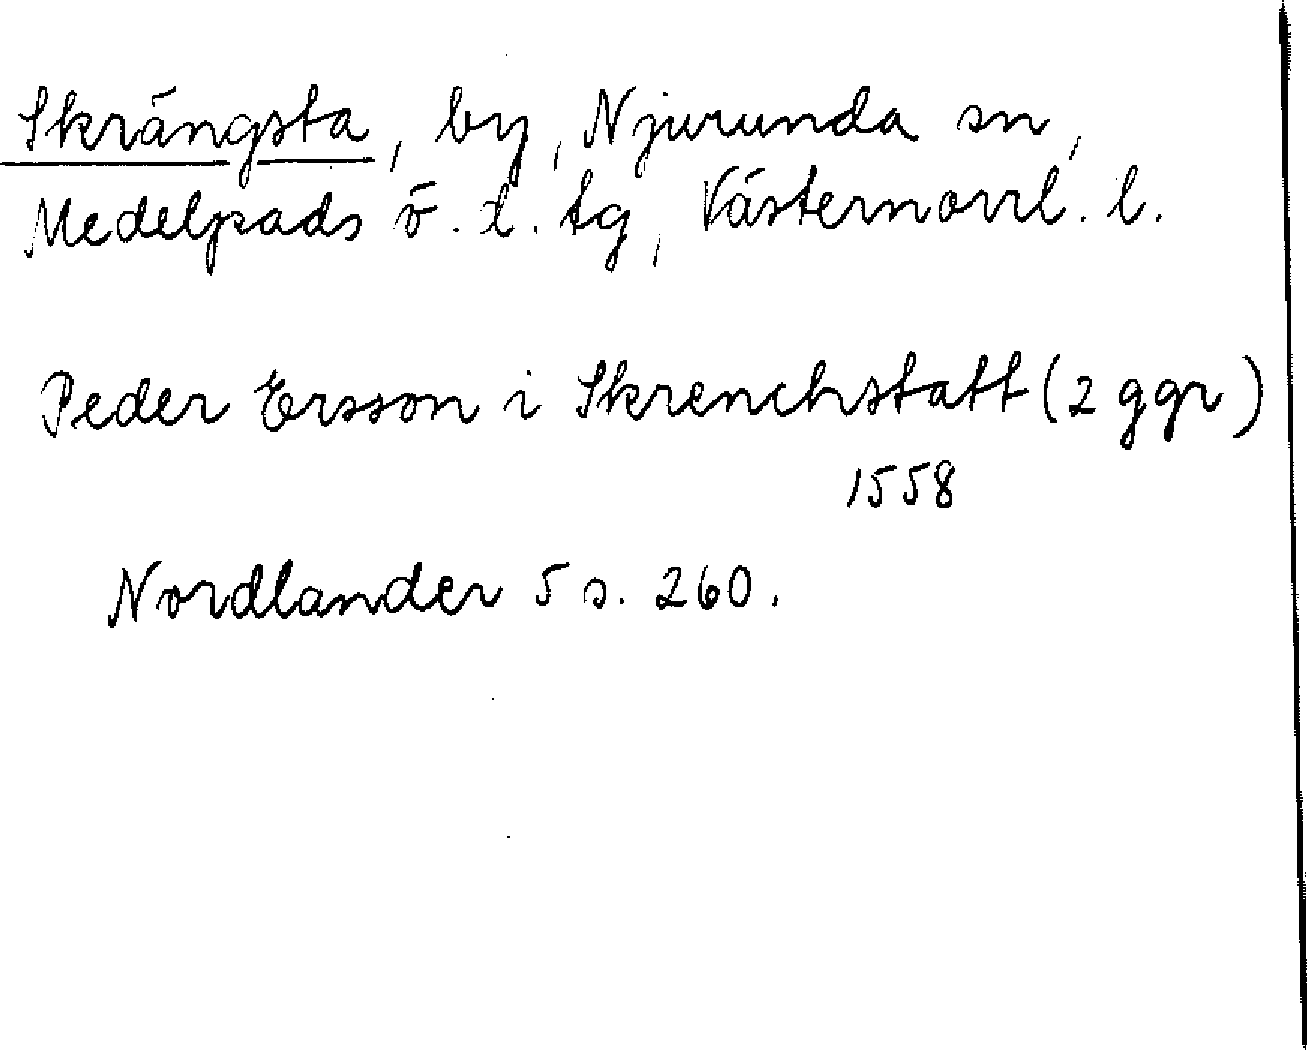 Skrängsta, by, Njurunda sn,
Medelpads ö. d. tg, Västernorrl. l.
Peder Ersson i Skrenchstatt (2 ggr)
1558
Nordlander 5 s. 260.